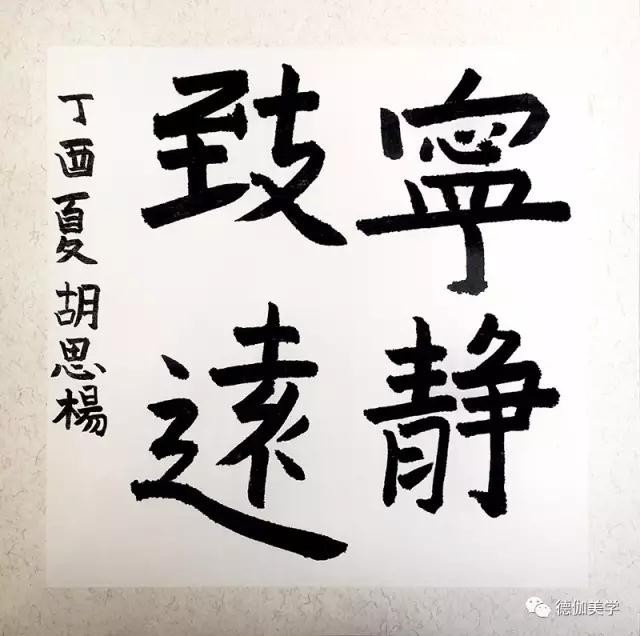 寧静
致遠
丁酉夏胡思楊
德伽美学